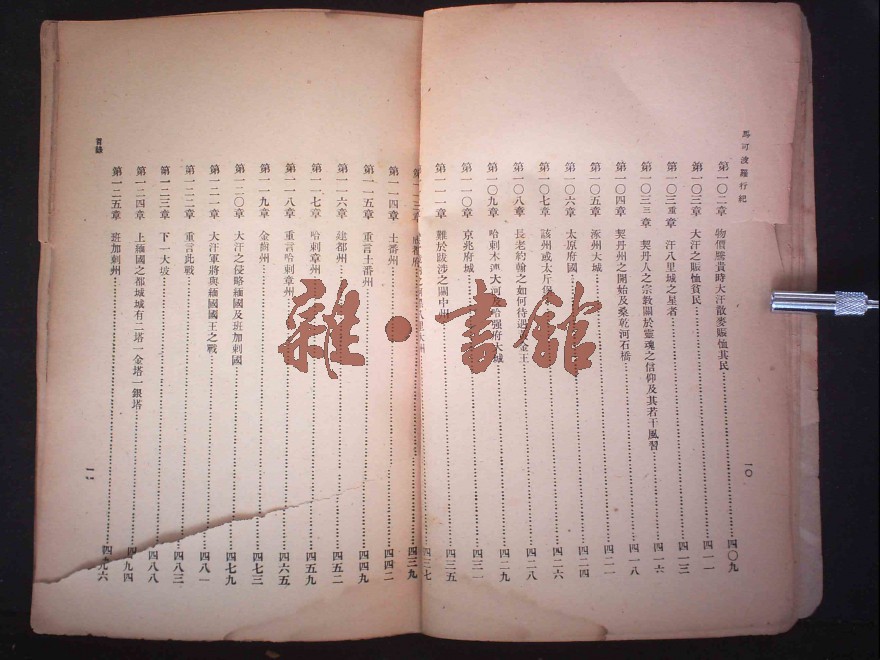 馬可波羅行紀
一〇
第一〇二章 物價騰貴時大汗散麥賑恤其民 四〇九
第一〇三章 大汗之賑恤貧民 四一一
第一〇三重章 汗八里城之星者 四一三
第一〇三三章 契丹人之宗敎關於靈魂之信仰及其若干風習 四一六
第一〇四章 契丹州之開始及桑乾河石橋 四一八
第一〇五章 涿州大城 四二一
第一〇六章 太原府國 四二四
第一〇七章 該州或太斤堡 四二六
第一〇八章 長老約翰之如何待遇金王 四二八
第一〇九章 哈剌木連大河及哈強府大城 四二九
第一一〇章 京兆府城 四三一
第一一一章 難於跋涉之關中州 四三五
四三七
第一一三章 成都府 四三九
第一一四章 土番州 四四二
第一一五章 重言土番州 四四九
第一一六章 建都州 四五二
第一一七章 哈剌章州 四五九
第一一八章 重言哈剌章州 四六五
第一一九章 金齒州 四七三
第一二〇章 大汗之侵略緬國及班加剌國 四七九
第一二一章 大汗軍將與緬國國王之戰 四八一
第一二二章 重言此戰 四八三
第一二三章 下一大坡 四八八
第一二四章 上緬國之都城城有二塔一金塔一銀塔 四九四
第一二五章 班加剌州 四九六
目錄
雜·書舘